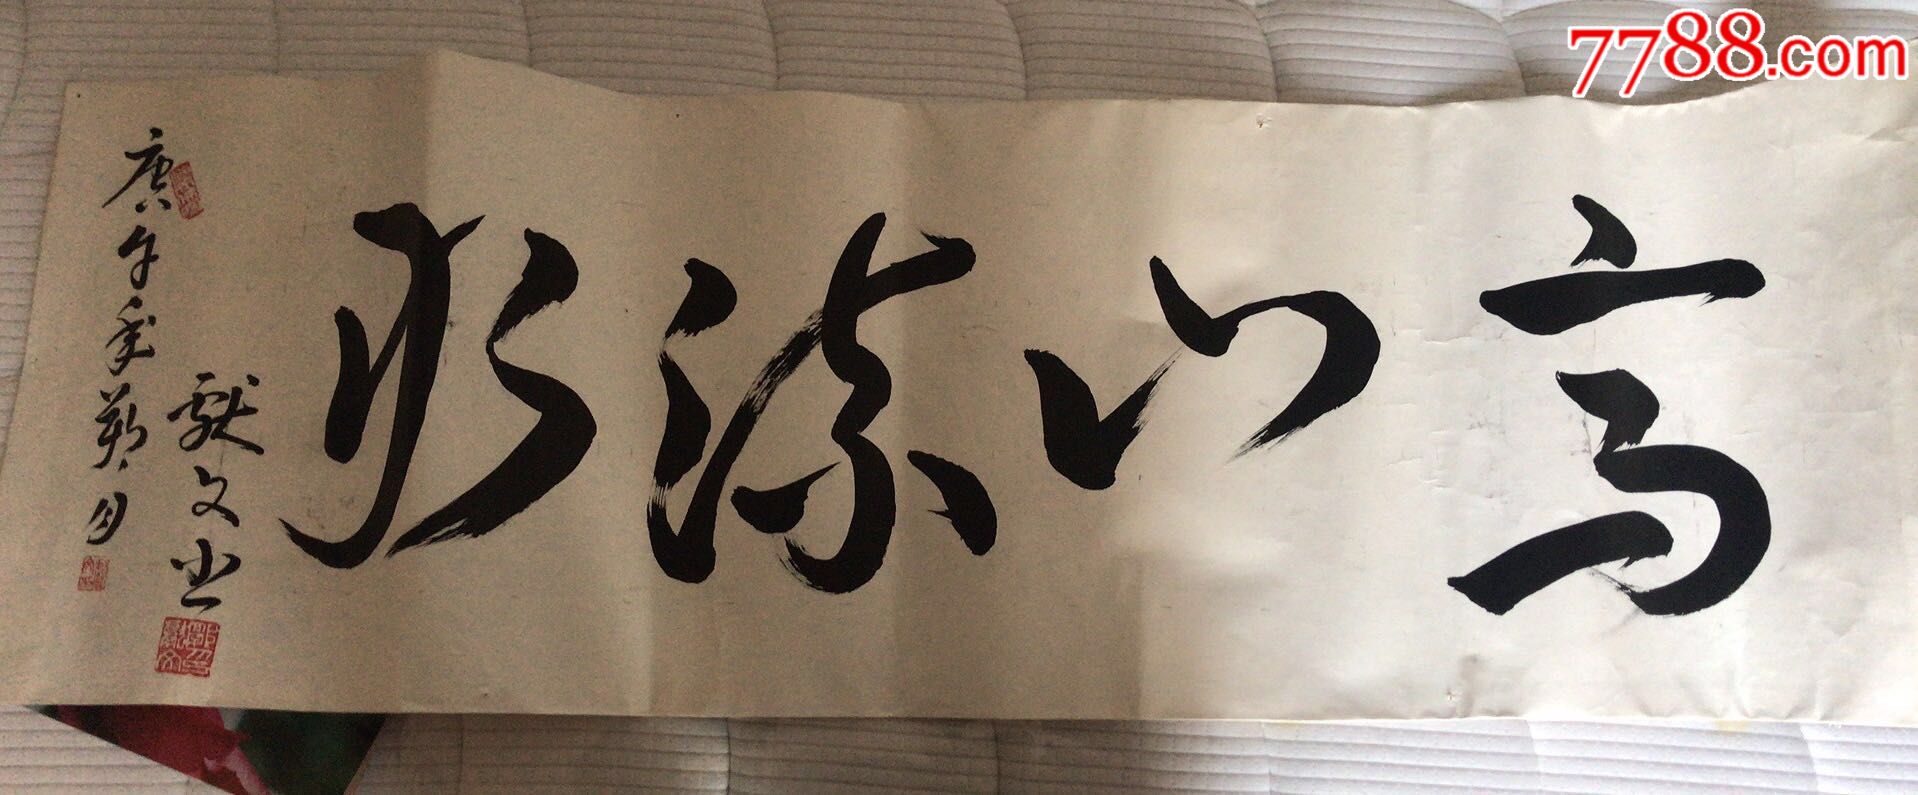 7788.com
高山流水
庚午年月
献文书